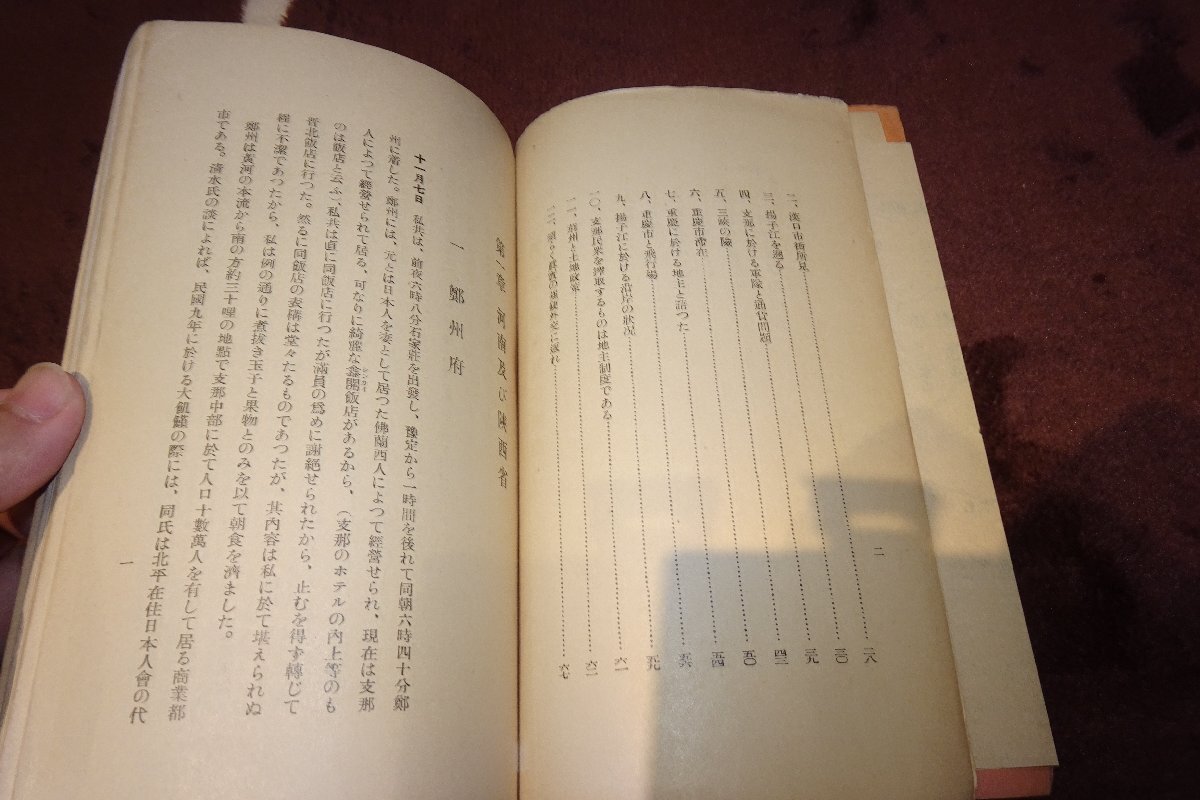 二
二、漢口市街所見……二八
三、揚子江を遡る……三〇
四、支那に於ける軍隊と通貨問題……三九
五、三峽の險……四三
六、重慶市滯在……五〇
七、重慶に於ける地主と語つた……五四
八、重慶市と飛行場……五六
九、揚子江に於ける沿岸の狀況……五九
一〇、支那民衆を搾取するものは地主制度である……六一
一一、荊州と土地政策……六二
六七
第一章 河南及び陝西省
一 鄭州府
十一月七日 私共は、前夜六時八分石家莊を出發し、豫定から一時間を後れて同朝六時四十分鄭
州に着した。鄭州には、元とは日本人を妻として居つた佛蘭西人によつて經營せられ、現在は支那
人によつて經營せられて居る、可なりに綺麗な鑫開飯店があるから、（支那のホテルの内上等のも
のは飯店と云ふ）、私共は直に同飯店に行つたが滿員の爲めに謝絶せられたから、止むを得ず轉じて
晋北飯店に行つた。然るに同飯店の表構は堂々たるものであつたが、其内容は私に於て堪えられぬ
程に不潔であつたから、私は例の通りに煮拔き玉子と果物とのみを以て朝食を濟ました。
鄭州は黃河の本流から南の方約三十哩の地點で支那中部に於て人口十數萬人を有して居る商業都
市である。清水氏の談によれば、民國九年に於ける大飢饉の際には、同氏は北平在住日本人會の代
一